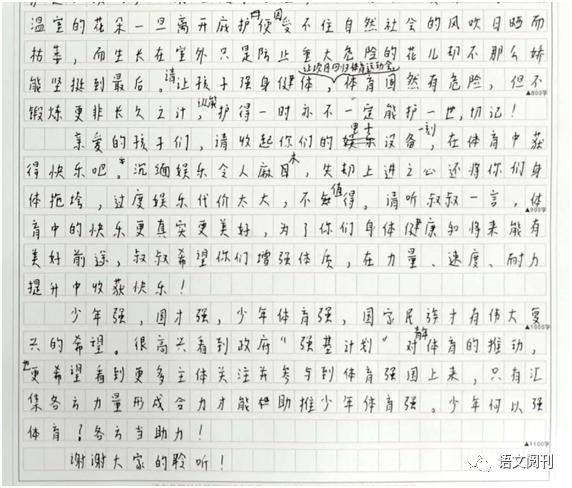 温室的花朵一旦离开庇护便因受不住自然社会的风吹日晒而
枯萎，而生长在室外只是防止重大危险的花儿却不那么娇
让项目回归体育运动会。
能坚挺到最后。请让孩子强身健体，体育固然有危险，但不
▲800字
锻炼更非长久之计，纵然护得一时亦不一定能护一世，切记！
亲爱的孩子们，请收起你们的电子设备，一刻在体育中获
得快乐吧。沉缅娱乐令人麻木，失却上进之心还将你们身
体拖垮，过度娱乐代价太大，不值得。请听叔叔一言，体
▲900字
育中的快乐更真实更美好，为了你们身体健康和将来能有
美好前途，叔叔希望你们增强体质，在力量、速度、耐力
提升中收获快乐！
少年强，国才强，少年体育强，国家民族才有伟大复
▲1000字
兴的希望。很高兴看到政府“强基计划”对体育的推动，
也更希望看到更多主体关注并参与到体育强国上来，只有汇
集各方力量形成合力才能助推少年体育强。少年何以强
体育？各方当助力！
▲1100字
谢谢大家的聆听！
语文阅刊